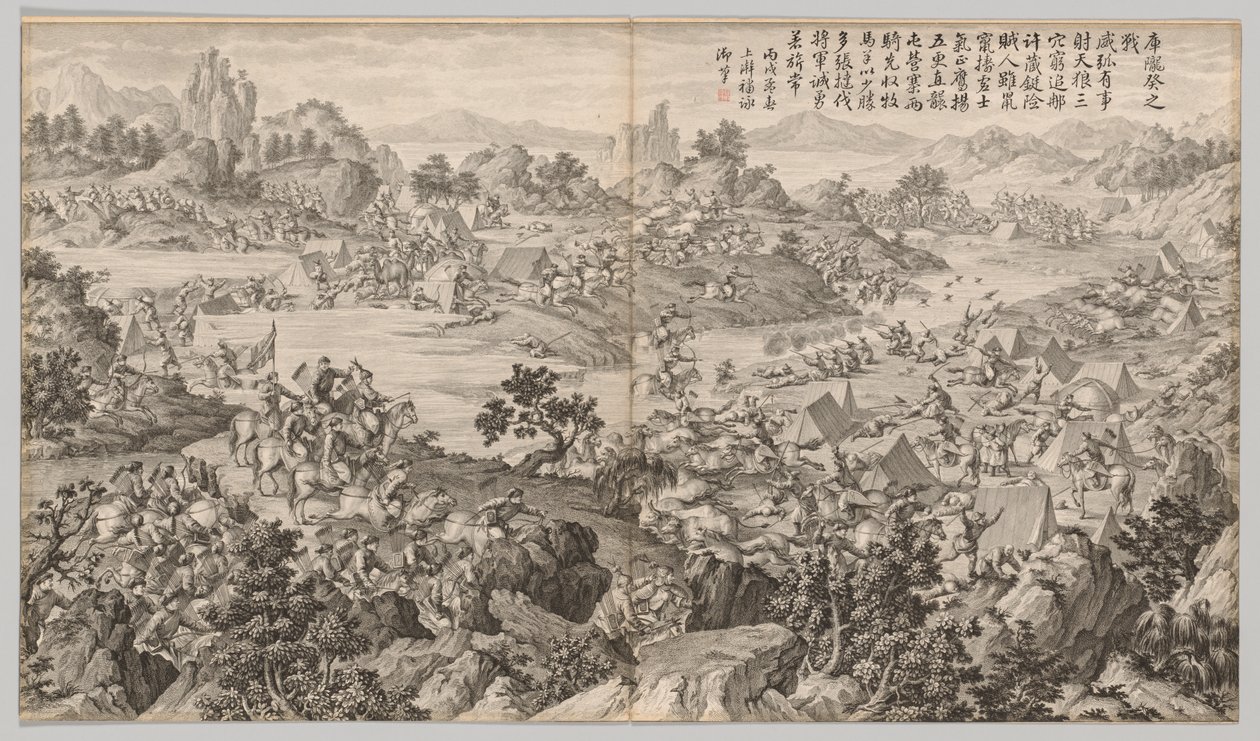 庫隴癸之
戰
威弧有事
射天狼三
穴窮追那
许藏鋌险
賊人雖鼠
竄擣虚士
氣正鷹揚
五更直襲
屯營寨兩
騎先收牧
馬羊以少勝
多張撻伐
將軍誠勇
著旂常
丙戌孟春
上澣補詠
御筆